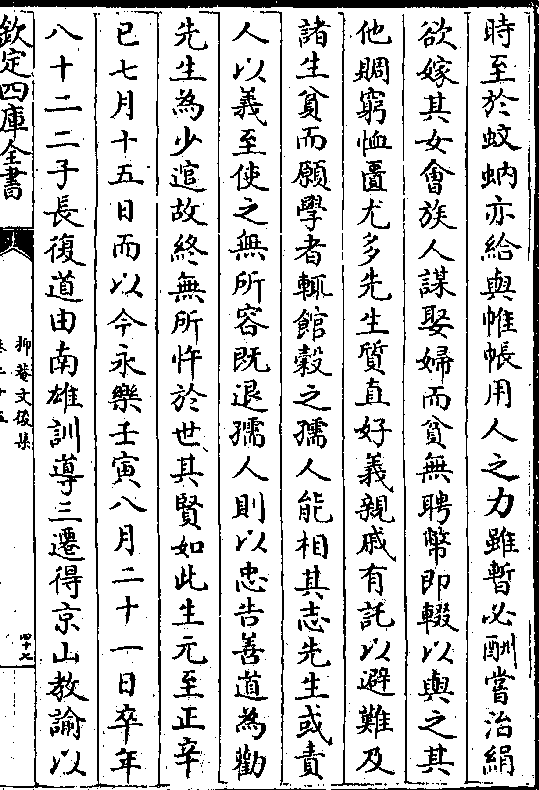 時至於蚊蚋亦給與帷帳用人之力雖暫必酬嘗治絹
欲嫁其女會族人謀娶婦而貧無聘幣即輟以與之其
他賙窮恤匱尤多先生質直好義親戚有託以避難及
諸生貧而願學者輒館穀之孺人能相其志先生或責
人以義至使之無所容既退孺人則以忠告善道為勸
先生為少逭故終無所忤於世其賢如此生元至正辛
巳七月十五日而以今永樂壬寅八月二十一日卒年
八十二二子長復道由南雄訓導三遷得京山教諭以
欽定四庫全書
抑菴文後集
卷二十五
四十七